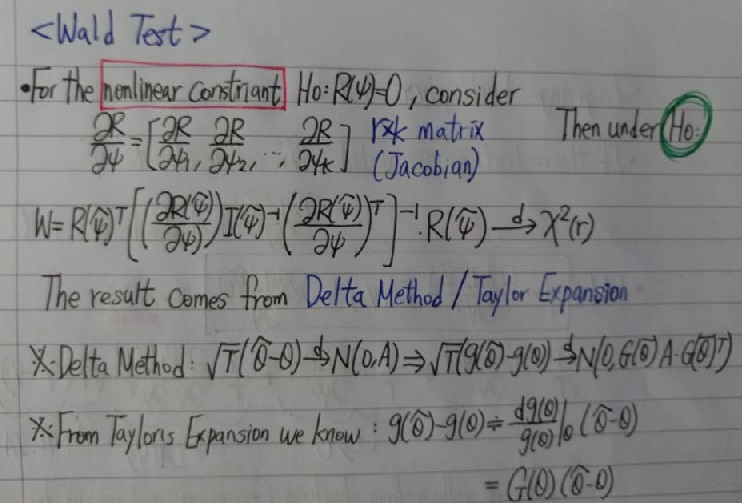 <Wald Test>
•For the nonlinear constriant Ho: R(ψ)=0, consider
∂R/∂ψ = [∂R/∂ψ₁, ∂R/∂ψ₂, ..., ∂R/∂ψₖ] r×k matrix (Jacobian) Then under Ho:
W = R(ψ̂)ᵀ[(∂R(ψ̂)/∂ψ)I(ψ̂)⁻¹(∂R(ψ̂)/∂ψ)ᵀ]⁻¹·R(ψ̂) →ᵈ χ²(r)
The result comes from Delta Method / Taylor Expansion
※Delta Method: √T(θ̂-θ) →ᵈ N(0,A) ⇒ √T(g(θ̂)-g(θ)) →ᵈ N(0, G(θ)A·G(θ)ᵀ)
※From Taylor's Expansion we know: g(θ̂)-g(θ) ≑ dg(θ)/g(θ)|θ (θ̂-θ)
= G(θ)(θ̂-θ)